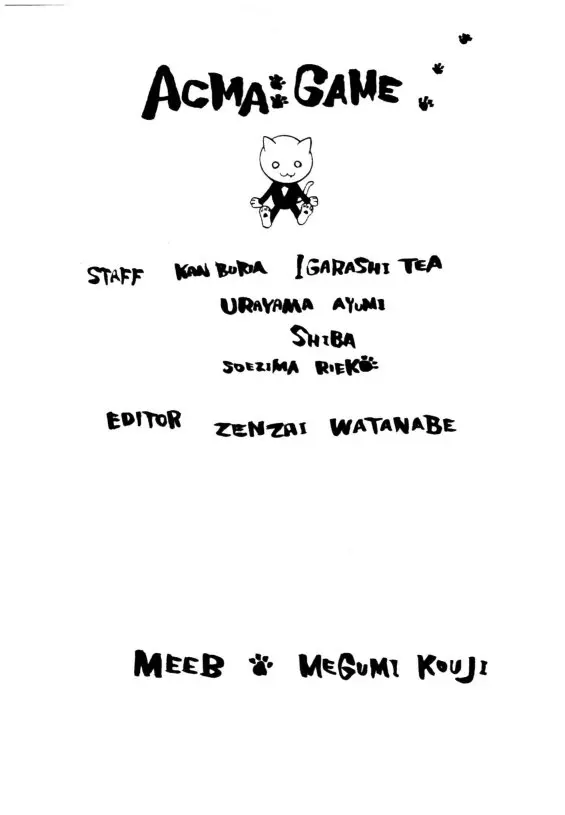 ACMA:GAME
STAFF KAN BURIA IGARASHI TEA
URAYAMA AYUMI
SHIBA
SOEZIMA RIEKO
EDITOR ZENZAI WATANABE
MEEB MEGUMI KOUJI